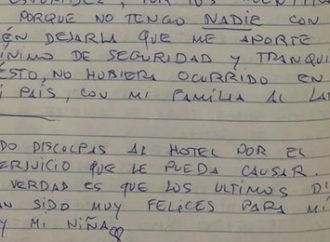 PORQUE NO TENGO NADIE CON
ÉN DEJARLA QUE ME APORTE
ÍNIMO DE SEGURIDAD Y TRANQUI
ESTO, NO HUBIERA OCURRIDO EN
PAÍS, CON MI FAMILIA AL LA
DO DISCOLPAS AL HOTEL POR EL
ERJUICIO QUE LE PUEDA CAUSAR.
VERDAD ES QUE LOS ULTIMOS D
AN SIDO MUY FELICES PARA MÍ
Y MI NIÑA